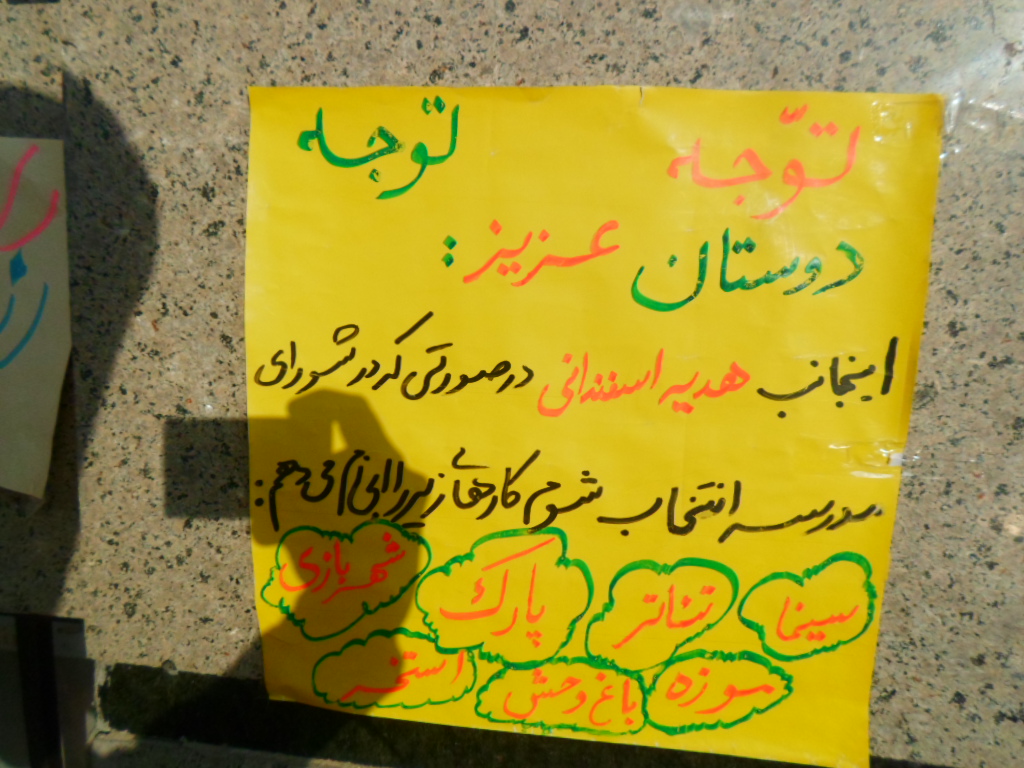 توّجه توّجه
دوستان عزیز :
اینجانب هدیه اسفندانی در صورتی که در شورای
مدرسه انتخاب شوم کارهای زیر را انجام می دهم :
سینما تئاتر پارک شهربازی
موزه باغ وحش استخر